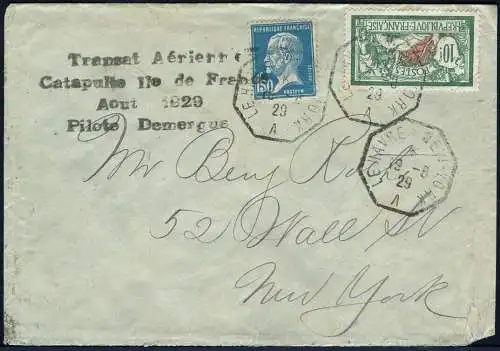 Transat Aérienne
Catapulte Ile de France
Aout 1929
Pilote Demergue
REPUBLIQUE FRANÇAISE
1F50
PASTEUR
POSTES
REPUBLIQUE FRANÇAISE
10F
LE HAVRE
NEW YORK
29
A
LE HAVRE
NEW YORK
8
29
A
LE HAVRE - NEW YORK
19 - 8
29
A
Mr Benj
52 Wall St
New York